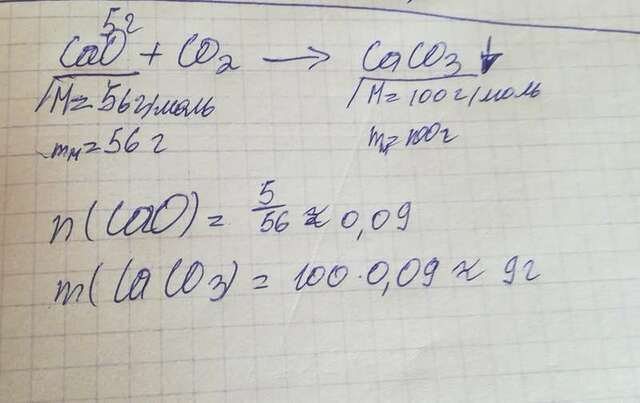 5г
CaO + CO₂ → CaCO₃ ↓
M = 56 г/моль M = 100 г/моль
mм = 56 г m = 100 г
n(CaO) = 5/56 ≈ 0,09
m(CaCO₃) = 100 · 0,09 ≈ 9г